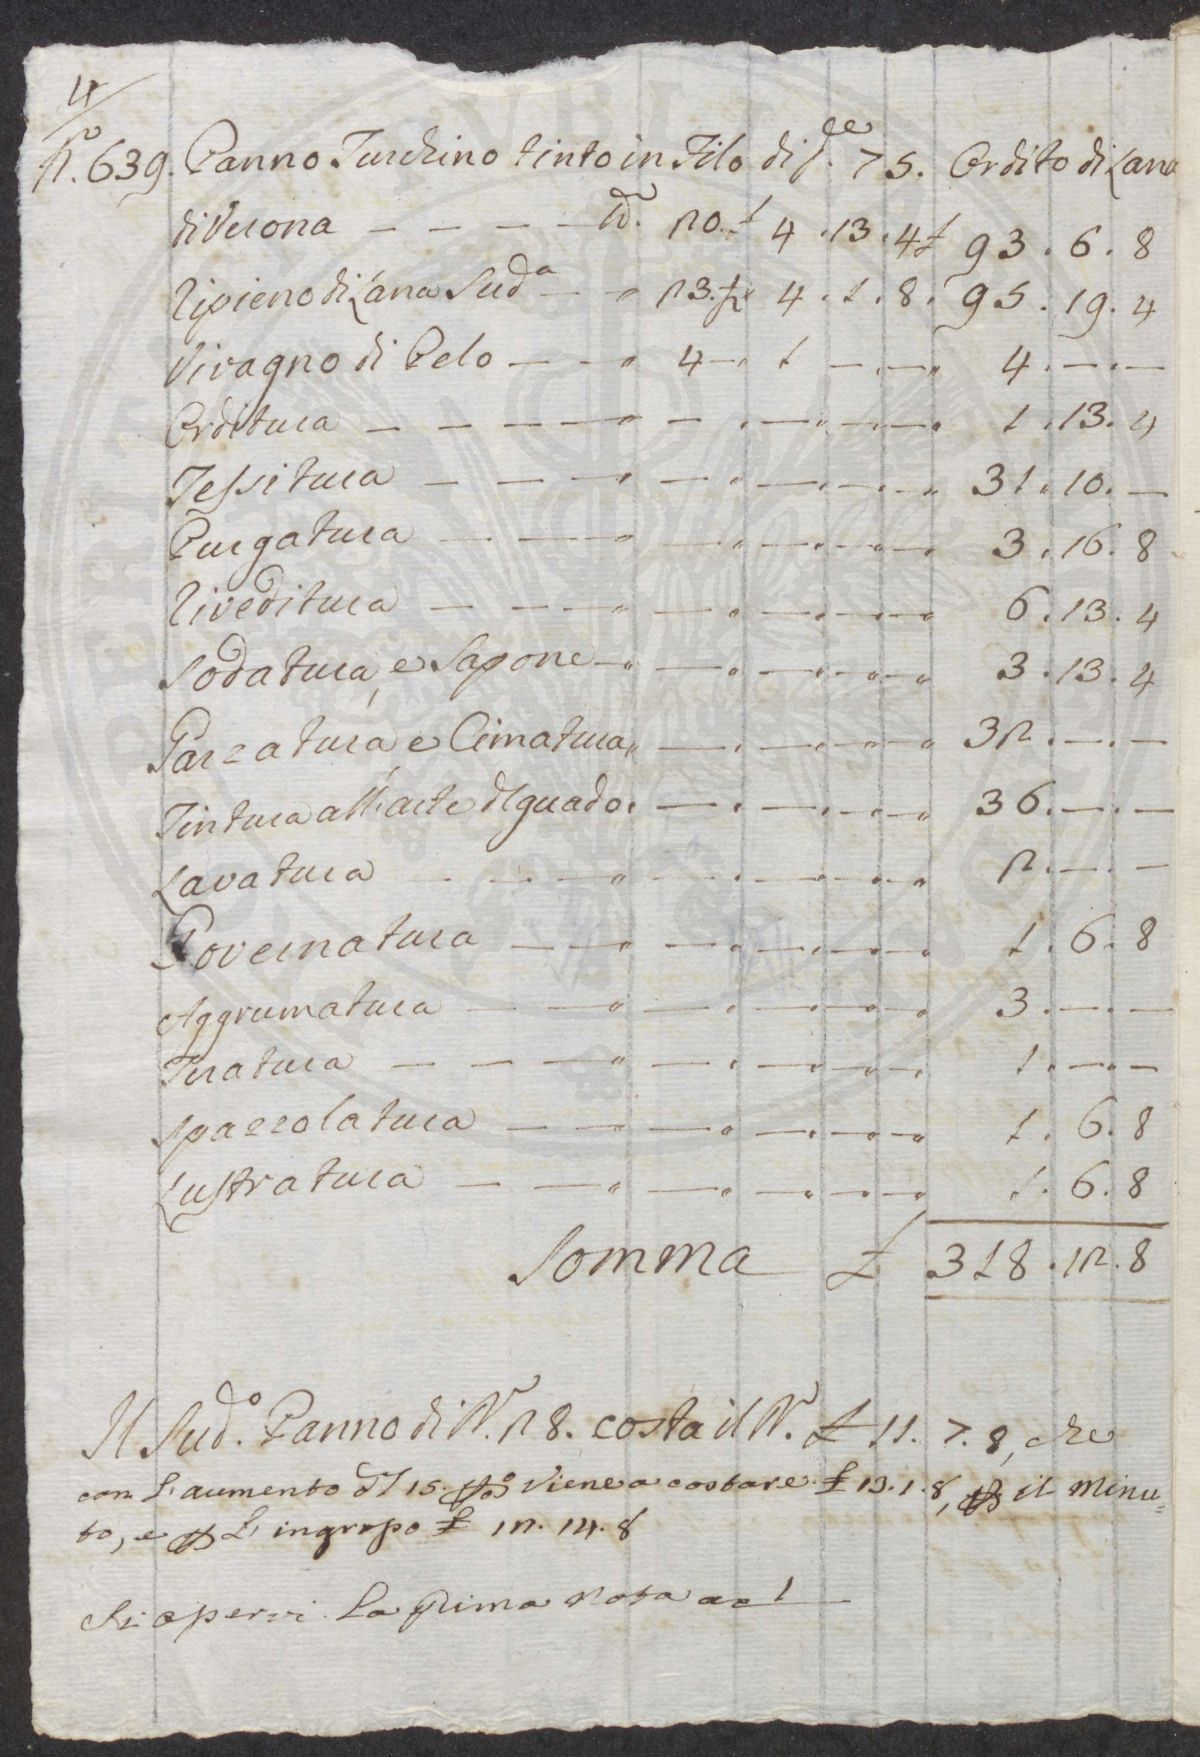 4
N.º 639. Panno Turchino tinto in Filo di P.de 75. Ordito di Lana
di Verona — — — — lb. 20. £ 4 . 13 . 4 £ 93 . 6 . 8
Ripieno di Lana Sud.a — " 23. £ 4 . 1 . 8 . 95 . 19 . 4
Vivagno di Pelo — — " 4 — " 1 — . — " 4 . — . —
Orditura — — — — — " — . — . — . — . 1 . 13 . 4
Tessitura — — — " — " — . — . — " 31 . 10 . —
Purgatura — — — " — " — . — . — . 3 . 16 . 8
Riveditura — — — " — " — . — . — . 6 . 13 . 4
Sodatura, e Sapone — " — " — . — . — " 3 . 13 . 4
Garzatura, e Cimatura " — . — . — . — " 32 . — . —
Tintura all'arte d'Guado . — . — . — . — " 36 . — . —
Lavatura — — — " — . — . — . — " 2 . — . —
Governatura — — " — . — . — . — . 1 . 6 . 8
Aggrumatura — — " — . — . — . — . 3 . — . —
Tiratura — — — " — . — . — . — . 1 . — . —
Spazzolatura — — " — . — . — . — " 1 . 6 . 8
Lustratura — — " — . — . — . — . 1 . 6 . 8
Somma £ 318 . 12 . 8
Il Sud.º Panno di N. 28. costa il N. £ 11. 7. 8, che
con L'aumento d'l 15. p % viene a costare £ 13. 1. 8, p il Minu=
to, e p L'ingrosso £ 12. 14. 8
Si osservi La prima Nota a 1